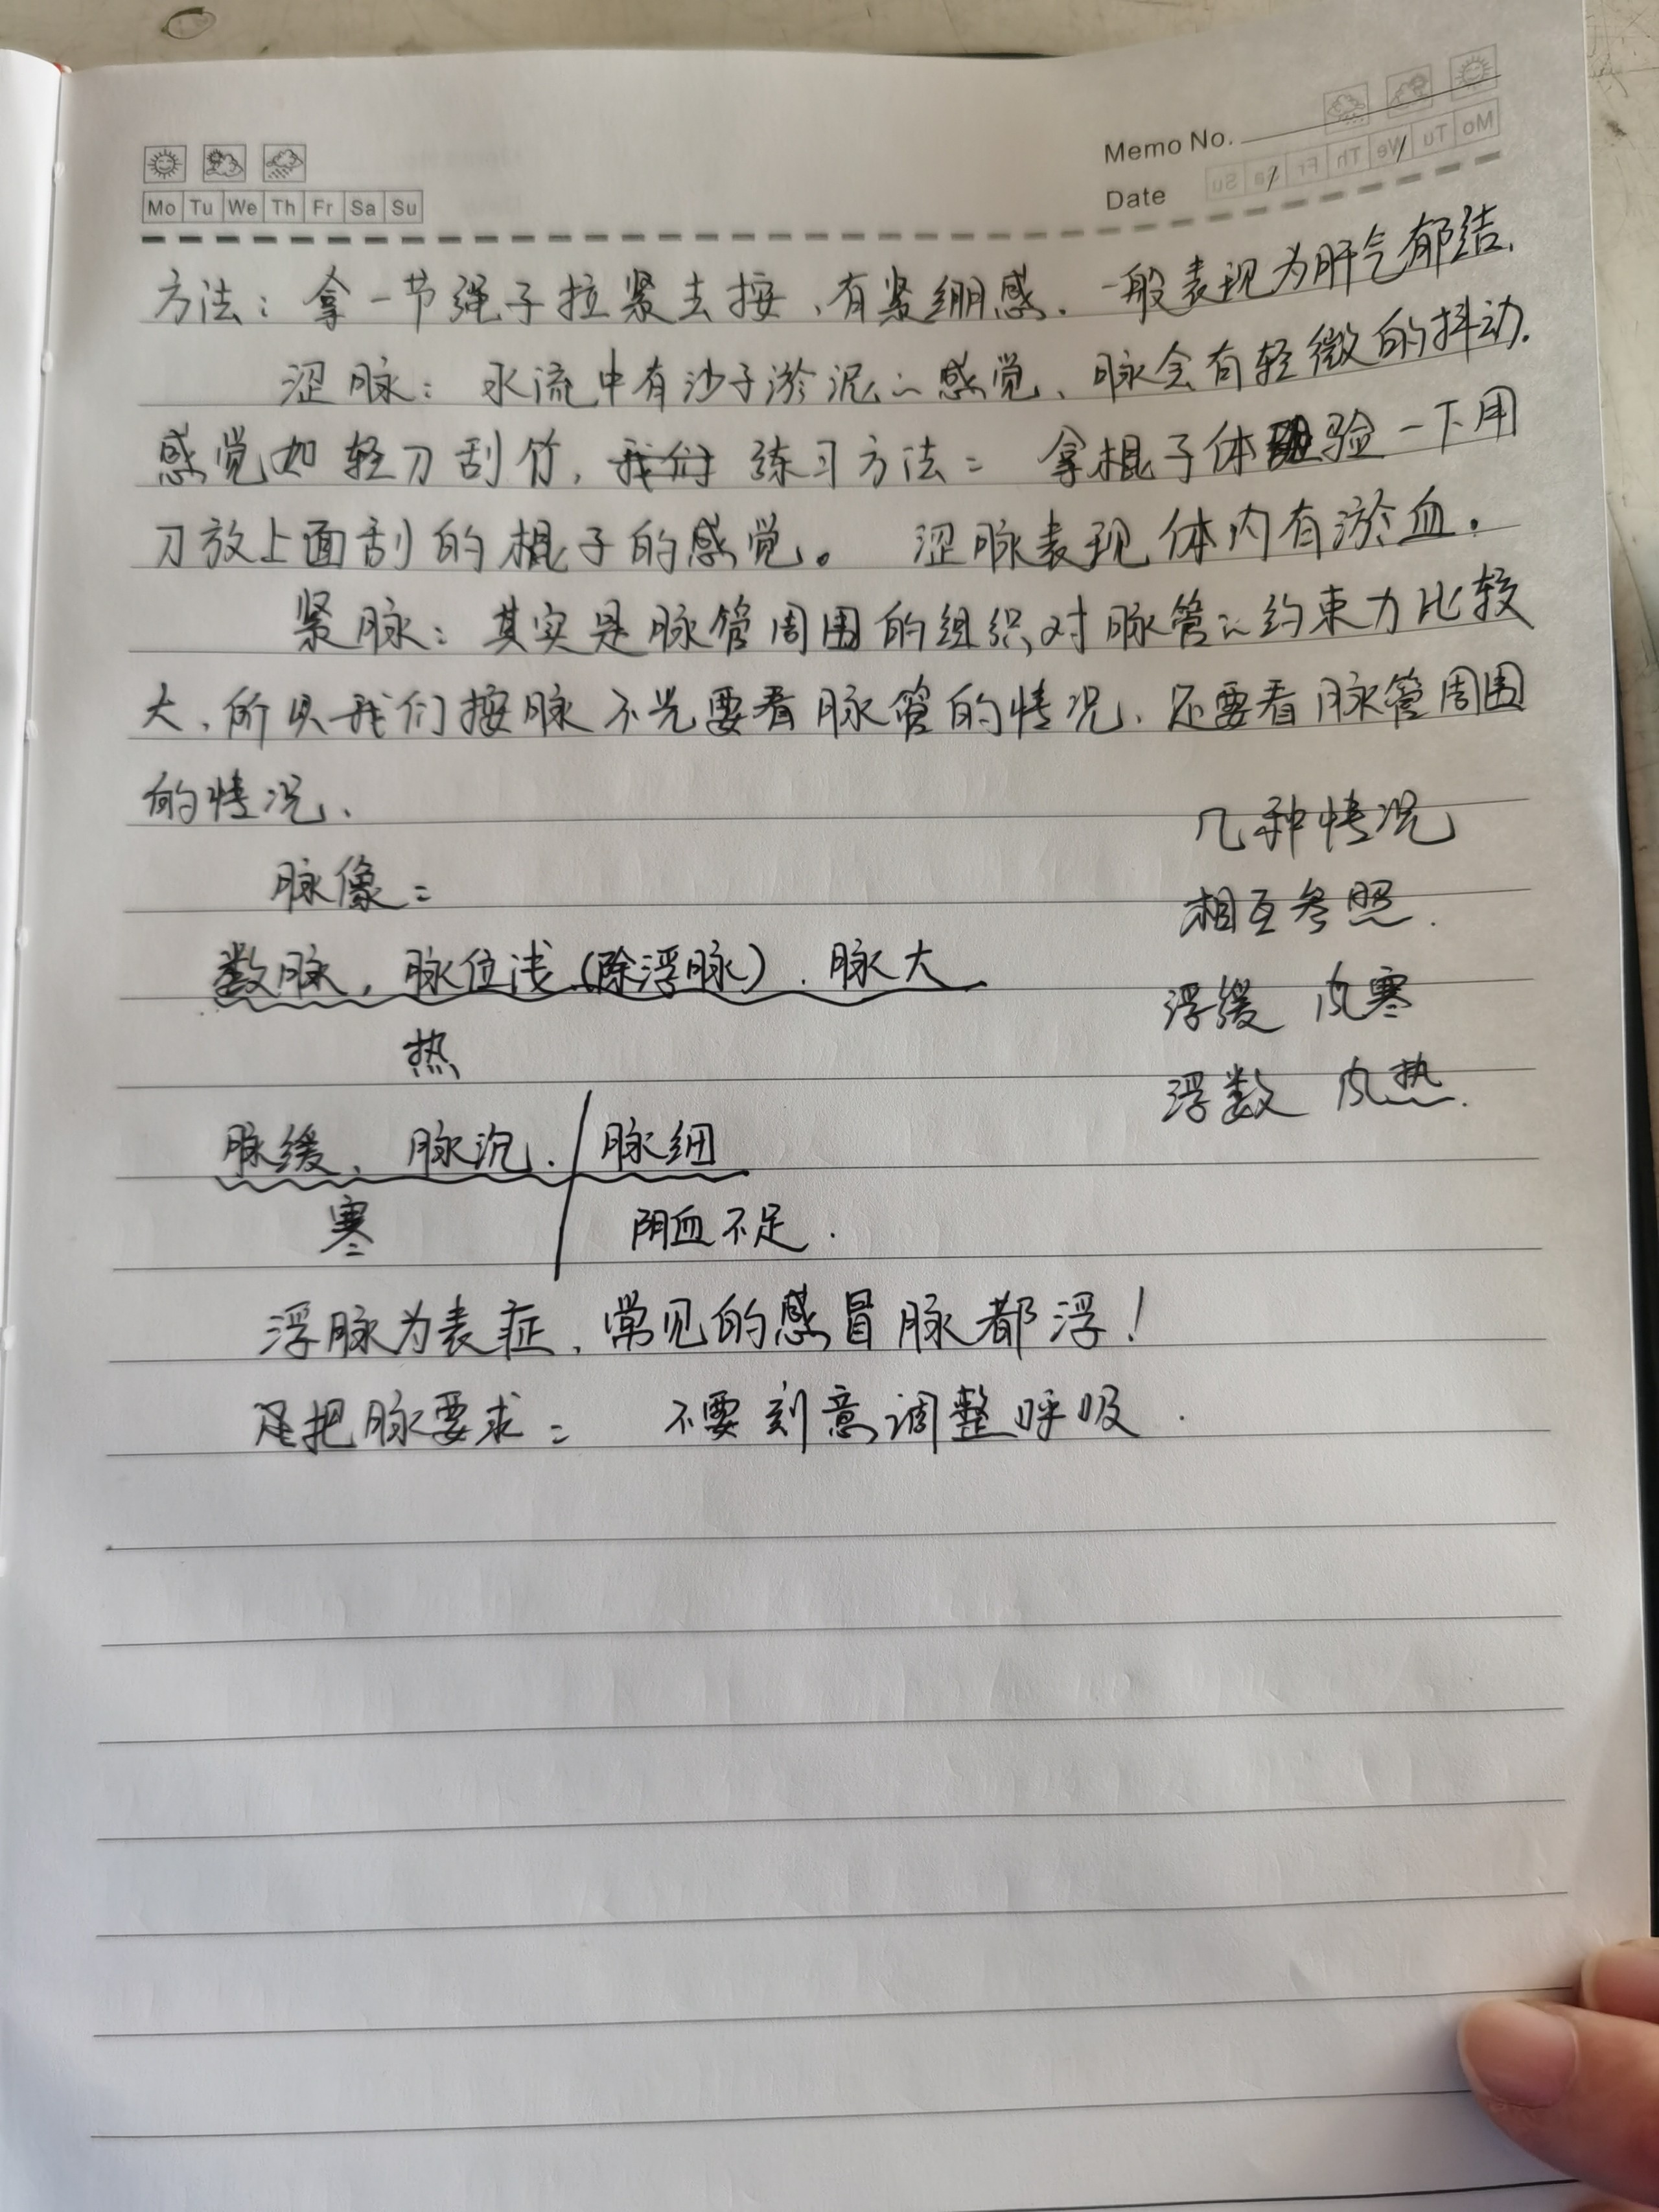 Memo No.
Mo Tu We Th Fr Sa Su
Date
方法：拿一节绳子拉紧去按、有紧绷感．一般表现为肝气郁结．
涩脉：水流中有沙子淤泥的感觉、脉会有轻微的抖动．
感觉如轻刀刮竹，我们 练习方法：拿棍子体验一下用
刀放上面刮的棍子的感觉。 涩脉表现体内有淤血．
紧脉：其实是脉管周围的组织对脉管的约束力比较
大、所以我们按脉不光要看脉管的情况、还要看脉管周围
的情况、
几种情况
脉像：
相互参照．
数脉，脉位浅（除浮脉）．脉大
浮缓 内寒
热
浮数 内热．
脉缓、脉沉．/脉细
寒 阴血不足．
浮脉为表症、常见的感冒脉都浮！
把脉要求： 不要刻意调整呼吸．